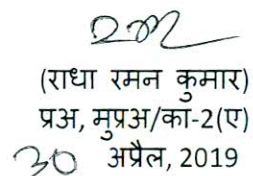 (राधा रमन कुमार)
प्रअ, मुप्रअ/का-2(ए)
30 अप्रैल, 2019